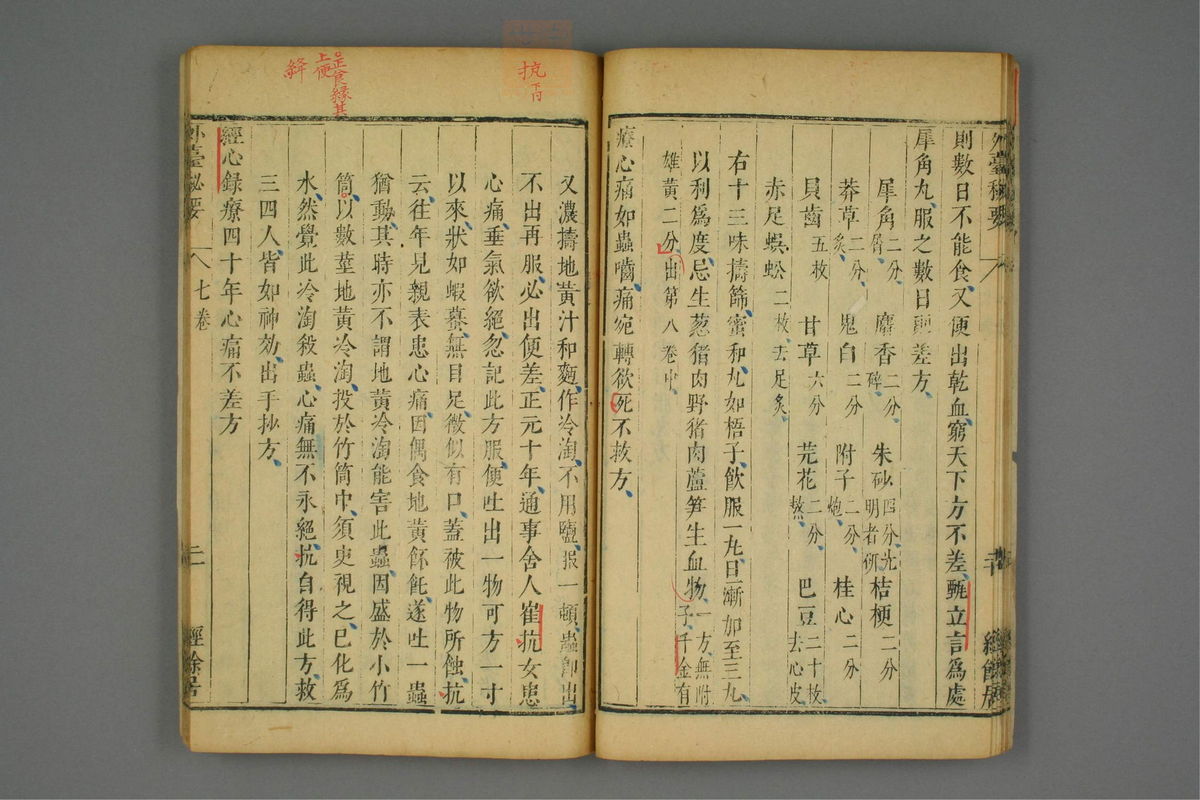 外臺秘要
則數日不能食又便出乾血窮天下方不差甄立言爲處
犀角丸服之數日則差方
犀角二分屑 麝香二分碎 朱砂四分光明者研 桔梗二分
莽草二分炙 鬼臼二分 附子二分炮 桂心二分
貝齒五枚 甘草六分 芫花二分熬 巴豆二十枚去心皮
赤足蜈蚣二枚去足炙
右十三味擣篩蜜和丸如梧子飲服一丸日二漸加至三丸
以利爲度忌生葱猪肉野猪肉蘆笋生血物一方無附子千金有
雄黃二分出第八卷中
療心痛如蟲嚙痛宛轉欲死不救方
經餘居
又濃擣地黃汁和麵作冷淘不用鹽服一頓蟲卽出
不出再服必出便差正元十年通事舍人崔抗女患
心痛垂氣欲絕忽記此方服便吐出一物可方一寸
以來狀如蝦蟇無目足微似有口蓋被此物所蝕抗
云往年見親表患心痛因偶食地黃餺飥遂吐一蟲
猶動其時亦不謂地黃冷淘能害此蟲因盛於小竹
筒以數莖地黃冷淘投於竹筒中須臾視之巳化爲
水然覺此冷淘殺蟲心痛無不永絕抗自得此方救
三四人皆如神効出手抄方
經心録療四十年心痛不差方
外臺秘要
七卷
二
經餘居
抗下同
上便
足正食緣其
絳